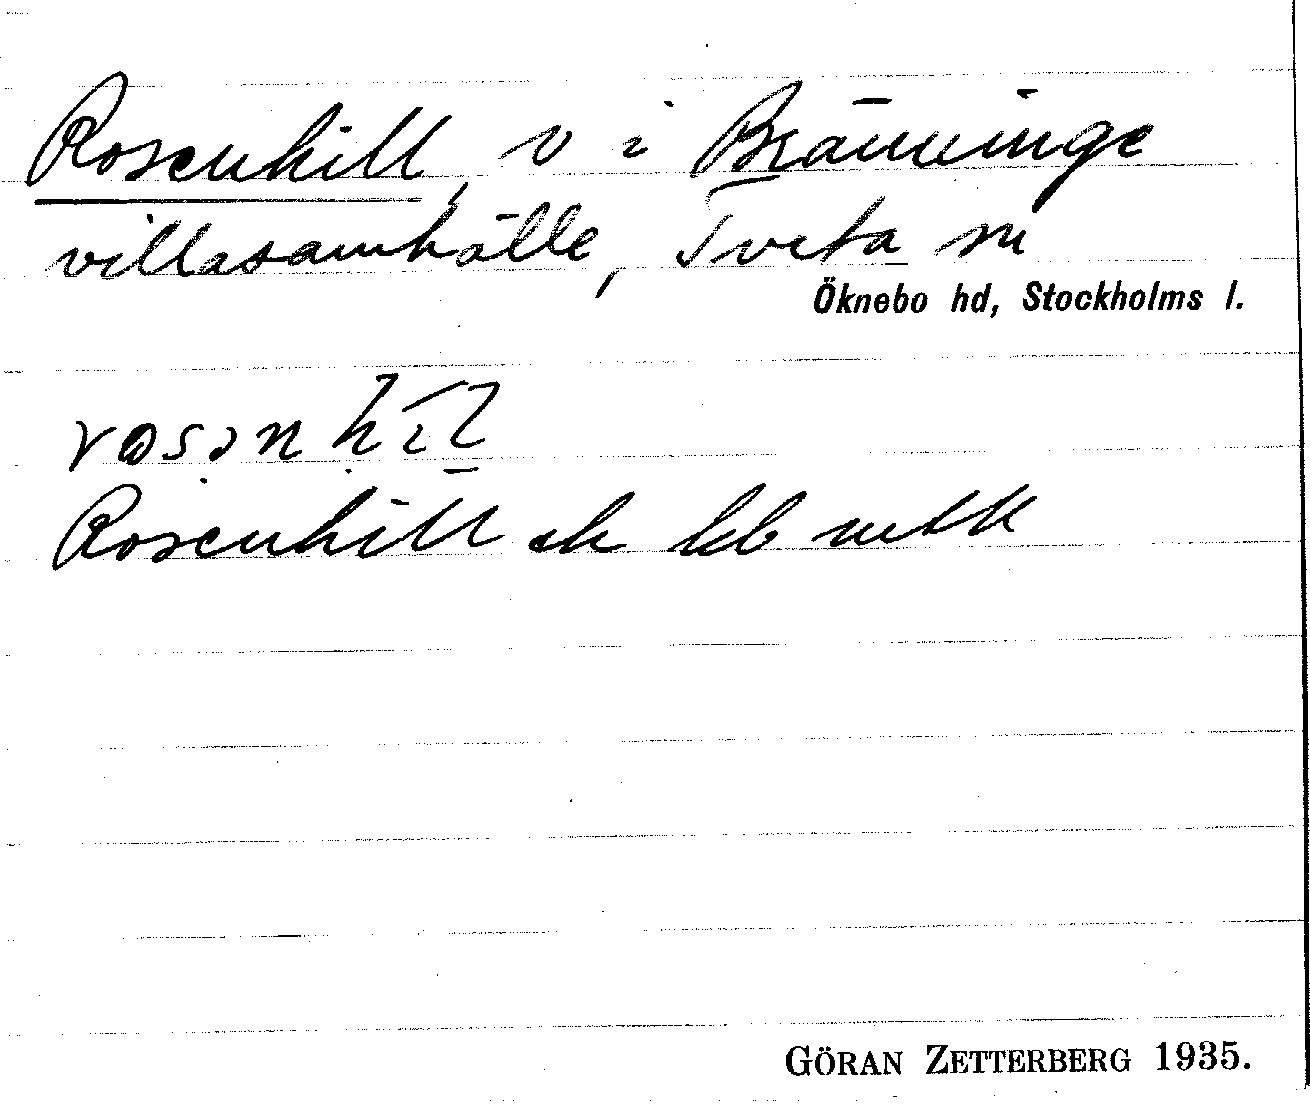 Rosenhill, v i Bränninge
villasamhälle, Tveta sn
Öknebo hd, Stockholms l.
rosənhìl
Rosenhill ek kb
GÖRAN ZETTERBERG 1935.